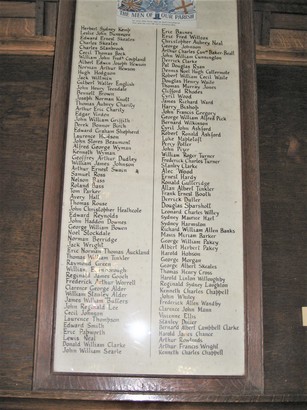 THE MEN OF OUR PARISH
Herbert Sydney Kemp
Leslie John Dunmore
Edward Ernest Skeales
Charles Skeales
Charles Stainbrook
Cecil Thomas Buck
William John Copeland
Albert Edwin Joseph Hewson
Norman Arthur Hewson
Hugh Hodgson
Jack Millman
Gilbert Walter English
John Henry Teesdale
Burnell Brown
Joseph Norman Knott
Thomas Aubrey Charity
Arthur Eric Charity
Edgar Vinden
John William Griffith
Derek Connor Birch
Edward Graham Shepherd
Laurence Hudson
John Storer Beaumont
Alfred George Wyman
Kenneth Wyman
Geoffrey Arthur Dudley
William James Johnson
Arthur Ernest Swain
Samuel Rose
Nelson Bass
Roland Bass
Tom Parker
Avery Hall
Thomas Rouse
John Christopher Heathcote
Edward Reynolds
John Haddon Downes
George William Bowen
Noel Stockdale
Norman Berridge
Jack Wright
Eric Norman Thomas Auckland
Thomas William Tinkler
Raymond Green
William
Reginald James Gooch
Frederick Arthur Worrell
Clarence George Alder
William Stanley Alder
James William Bullers
John Reginald Lee
Cecil Johnson
Laurence Thompson
Edward Smith
Eric Papworth
Lewis Neal
Donald William Cox
John William Searle
Eric Baines
Eric Fred Wilson
Christopher Aubrey Neal
George Johnson
Arthur Charles Baker-Beall
John William Cunnington
Derrick Clarke
Dennis Noel Hugh Cattermole
Robert William Cecil Waite
Douglas Henry Waite
Thomas Murray Jones
Clifford Rhodes
Cyril Wood
James Richard Ward
Harry Bishop
John Francis Gregory
George William Alfred Pick
Bernard Wilkinson
Cyril John Ashford
Robert Ronald Ashford
Luke Mapletoft
Percy Potter
John Pryor
William Roger Turner
Frederick Charles Turner
Stanley Clarke
Alec Wood
Ernest Hardy
Ronald Gutteridge
Allan Albert Tinkler
Frank Ernest Booth
Derrick Buller
Douglas Sharphouse
Leonard Charles Willey
Sydney Maurice Hart
Sydney Harmston
Richard William Allen Banks
Mario Minchin Barber
George William Pakey
Albert Herbert Pakey
Harold Hobson
George Morgan
George Albert Skeales
Thomas Henry Cross
Harold Linton Willoughby
Reginald Sydney Longhton
Kenneth Charles Chappell
John Whiley
Frederick Allen Windley
Clarence John Mann
Vivienne Ellis
Stanley Dexter
Bernard Albert Campbell Clarke
Harold James Chance
Arthur Rowlands
Arthur Francis Wright
Kenneth Charles Chappell